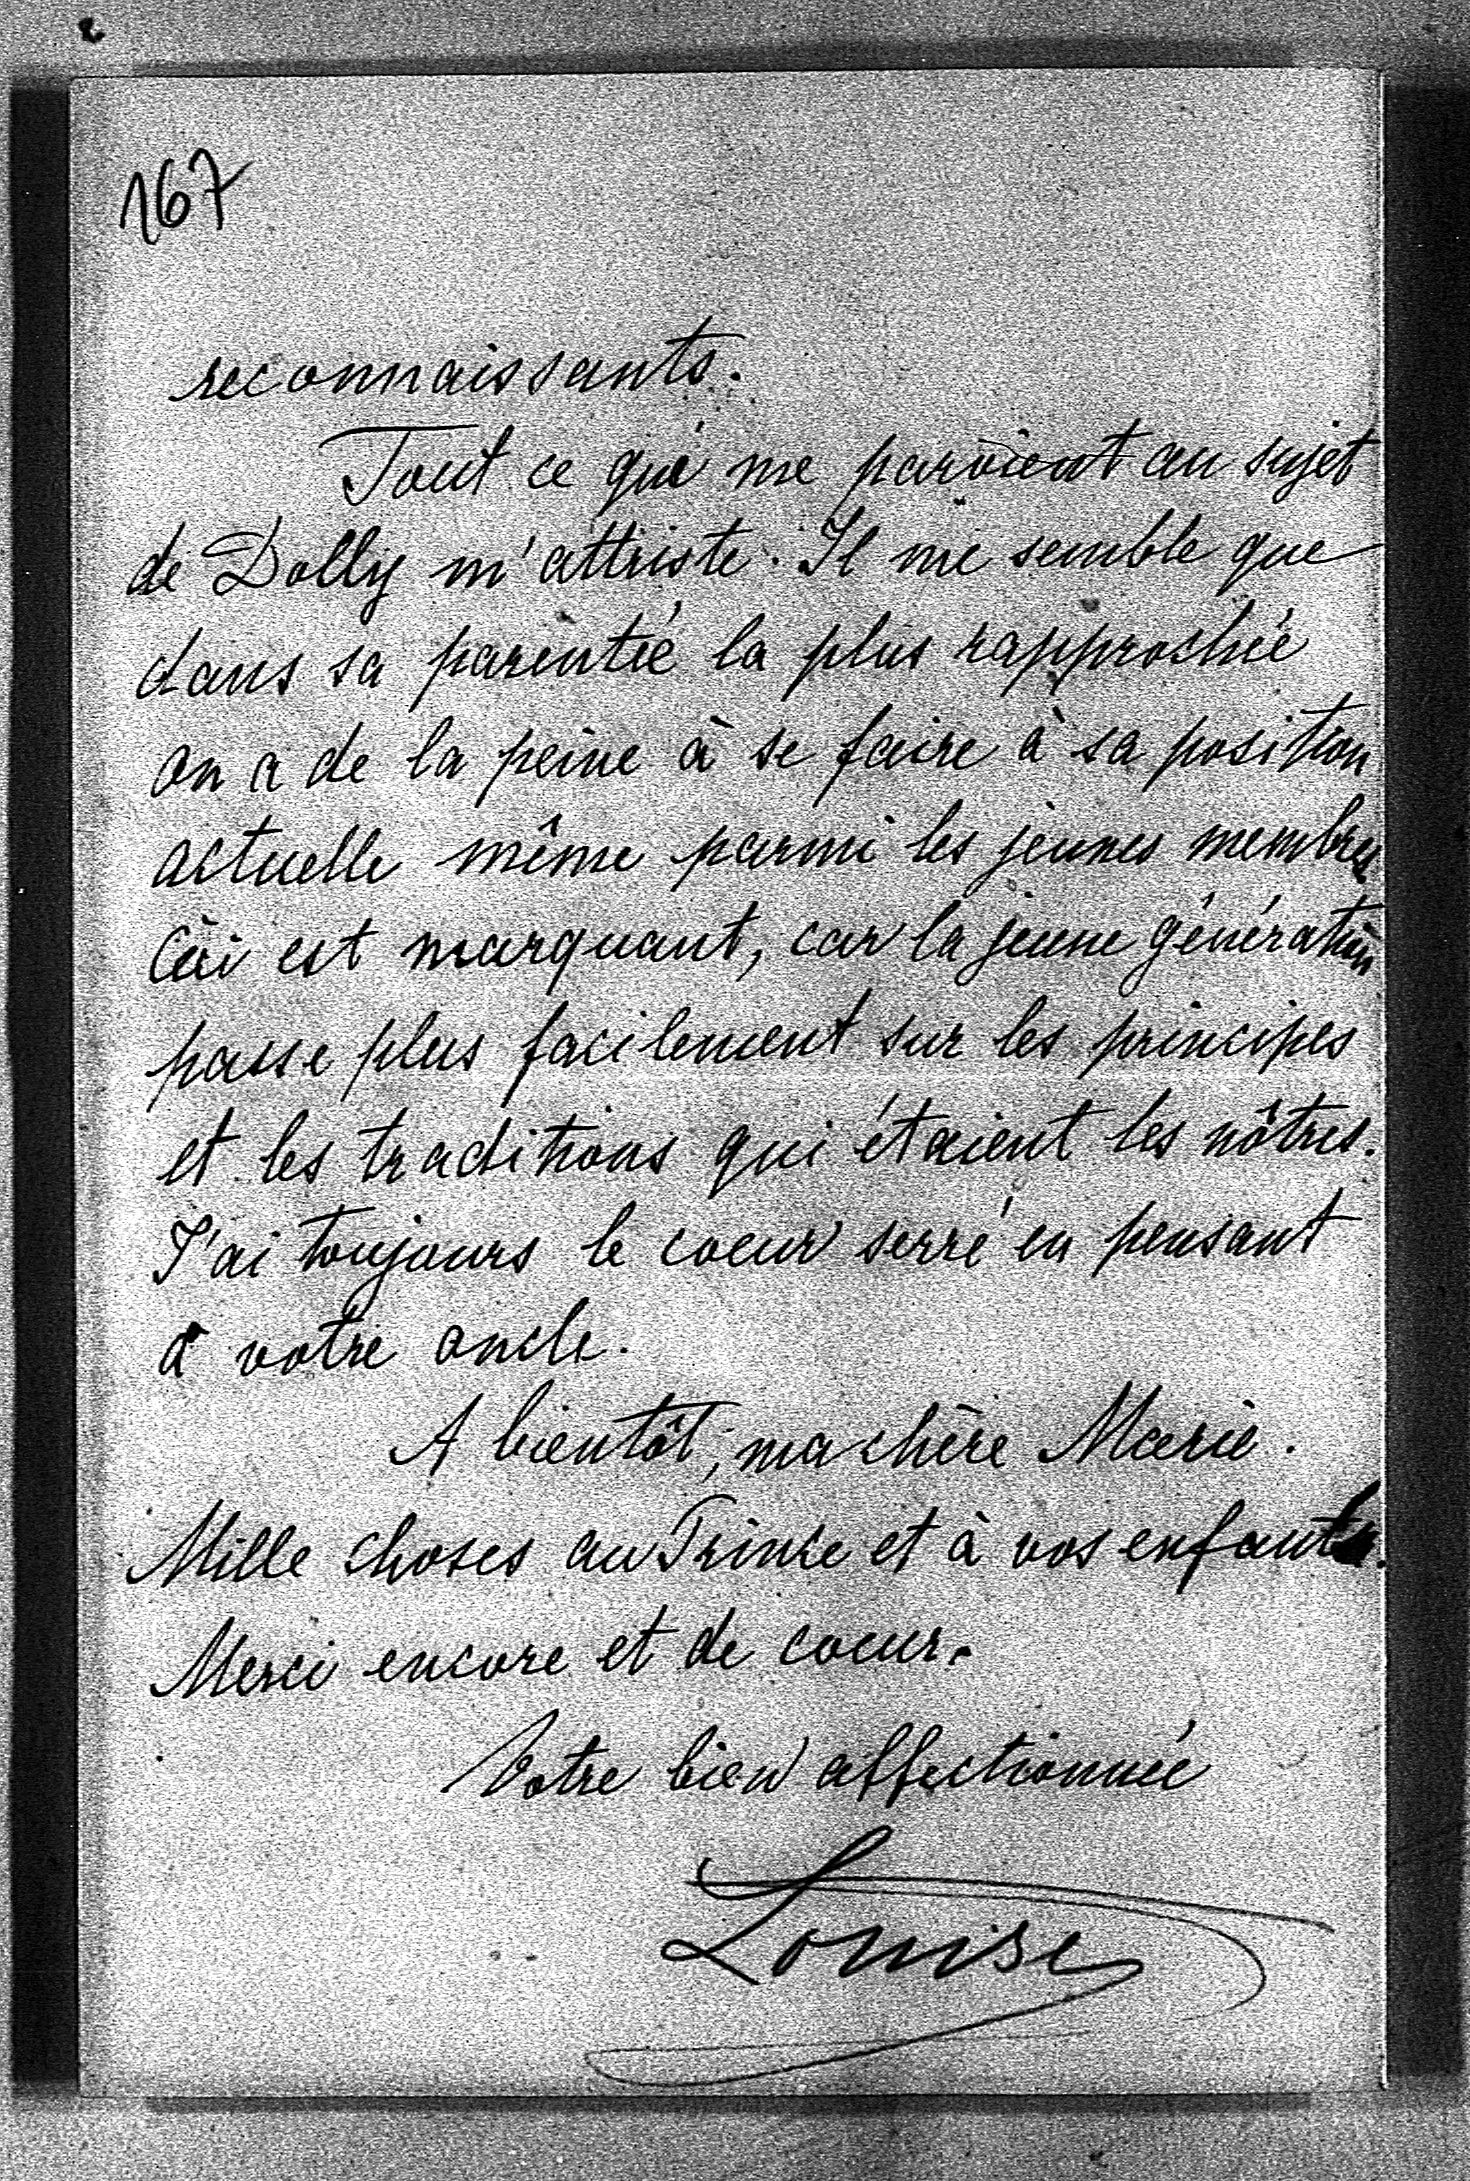 167
reconnaissants.
Tout ce qui me parvient au sujet
de Dolly m'attriste. Il me semble que
dans sa parenté la plus rapprochée
on a de la peine à se faire à sa position
actuelle même parmi les jeunes membres
Ceci est marquant, car la jeune génération
passe plus facilement sur les principes
et les traditions qui étaient les nôtres.
J'ai toujours le coeur serré en pensant
à votre oncle.
A bientôt, ma chère Marie.
Mille choses au Prince et à vos enfants.
Merci encore et de coeur.
Votre bien affectionnée
Louise